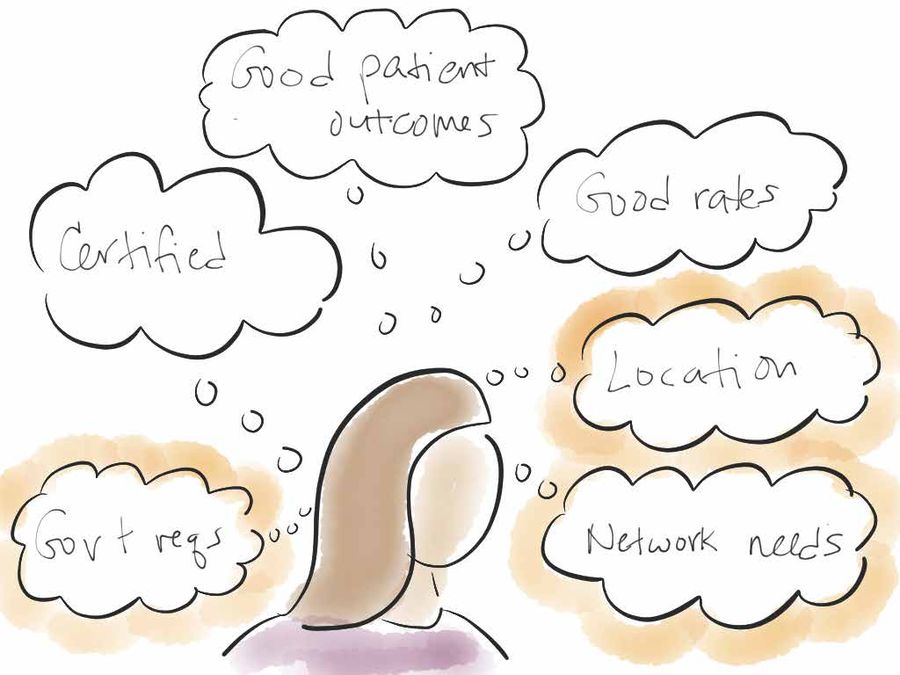 Good patient
outcomes
Certified
Good rates
Location
Gov't reqs
Network needs